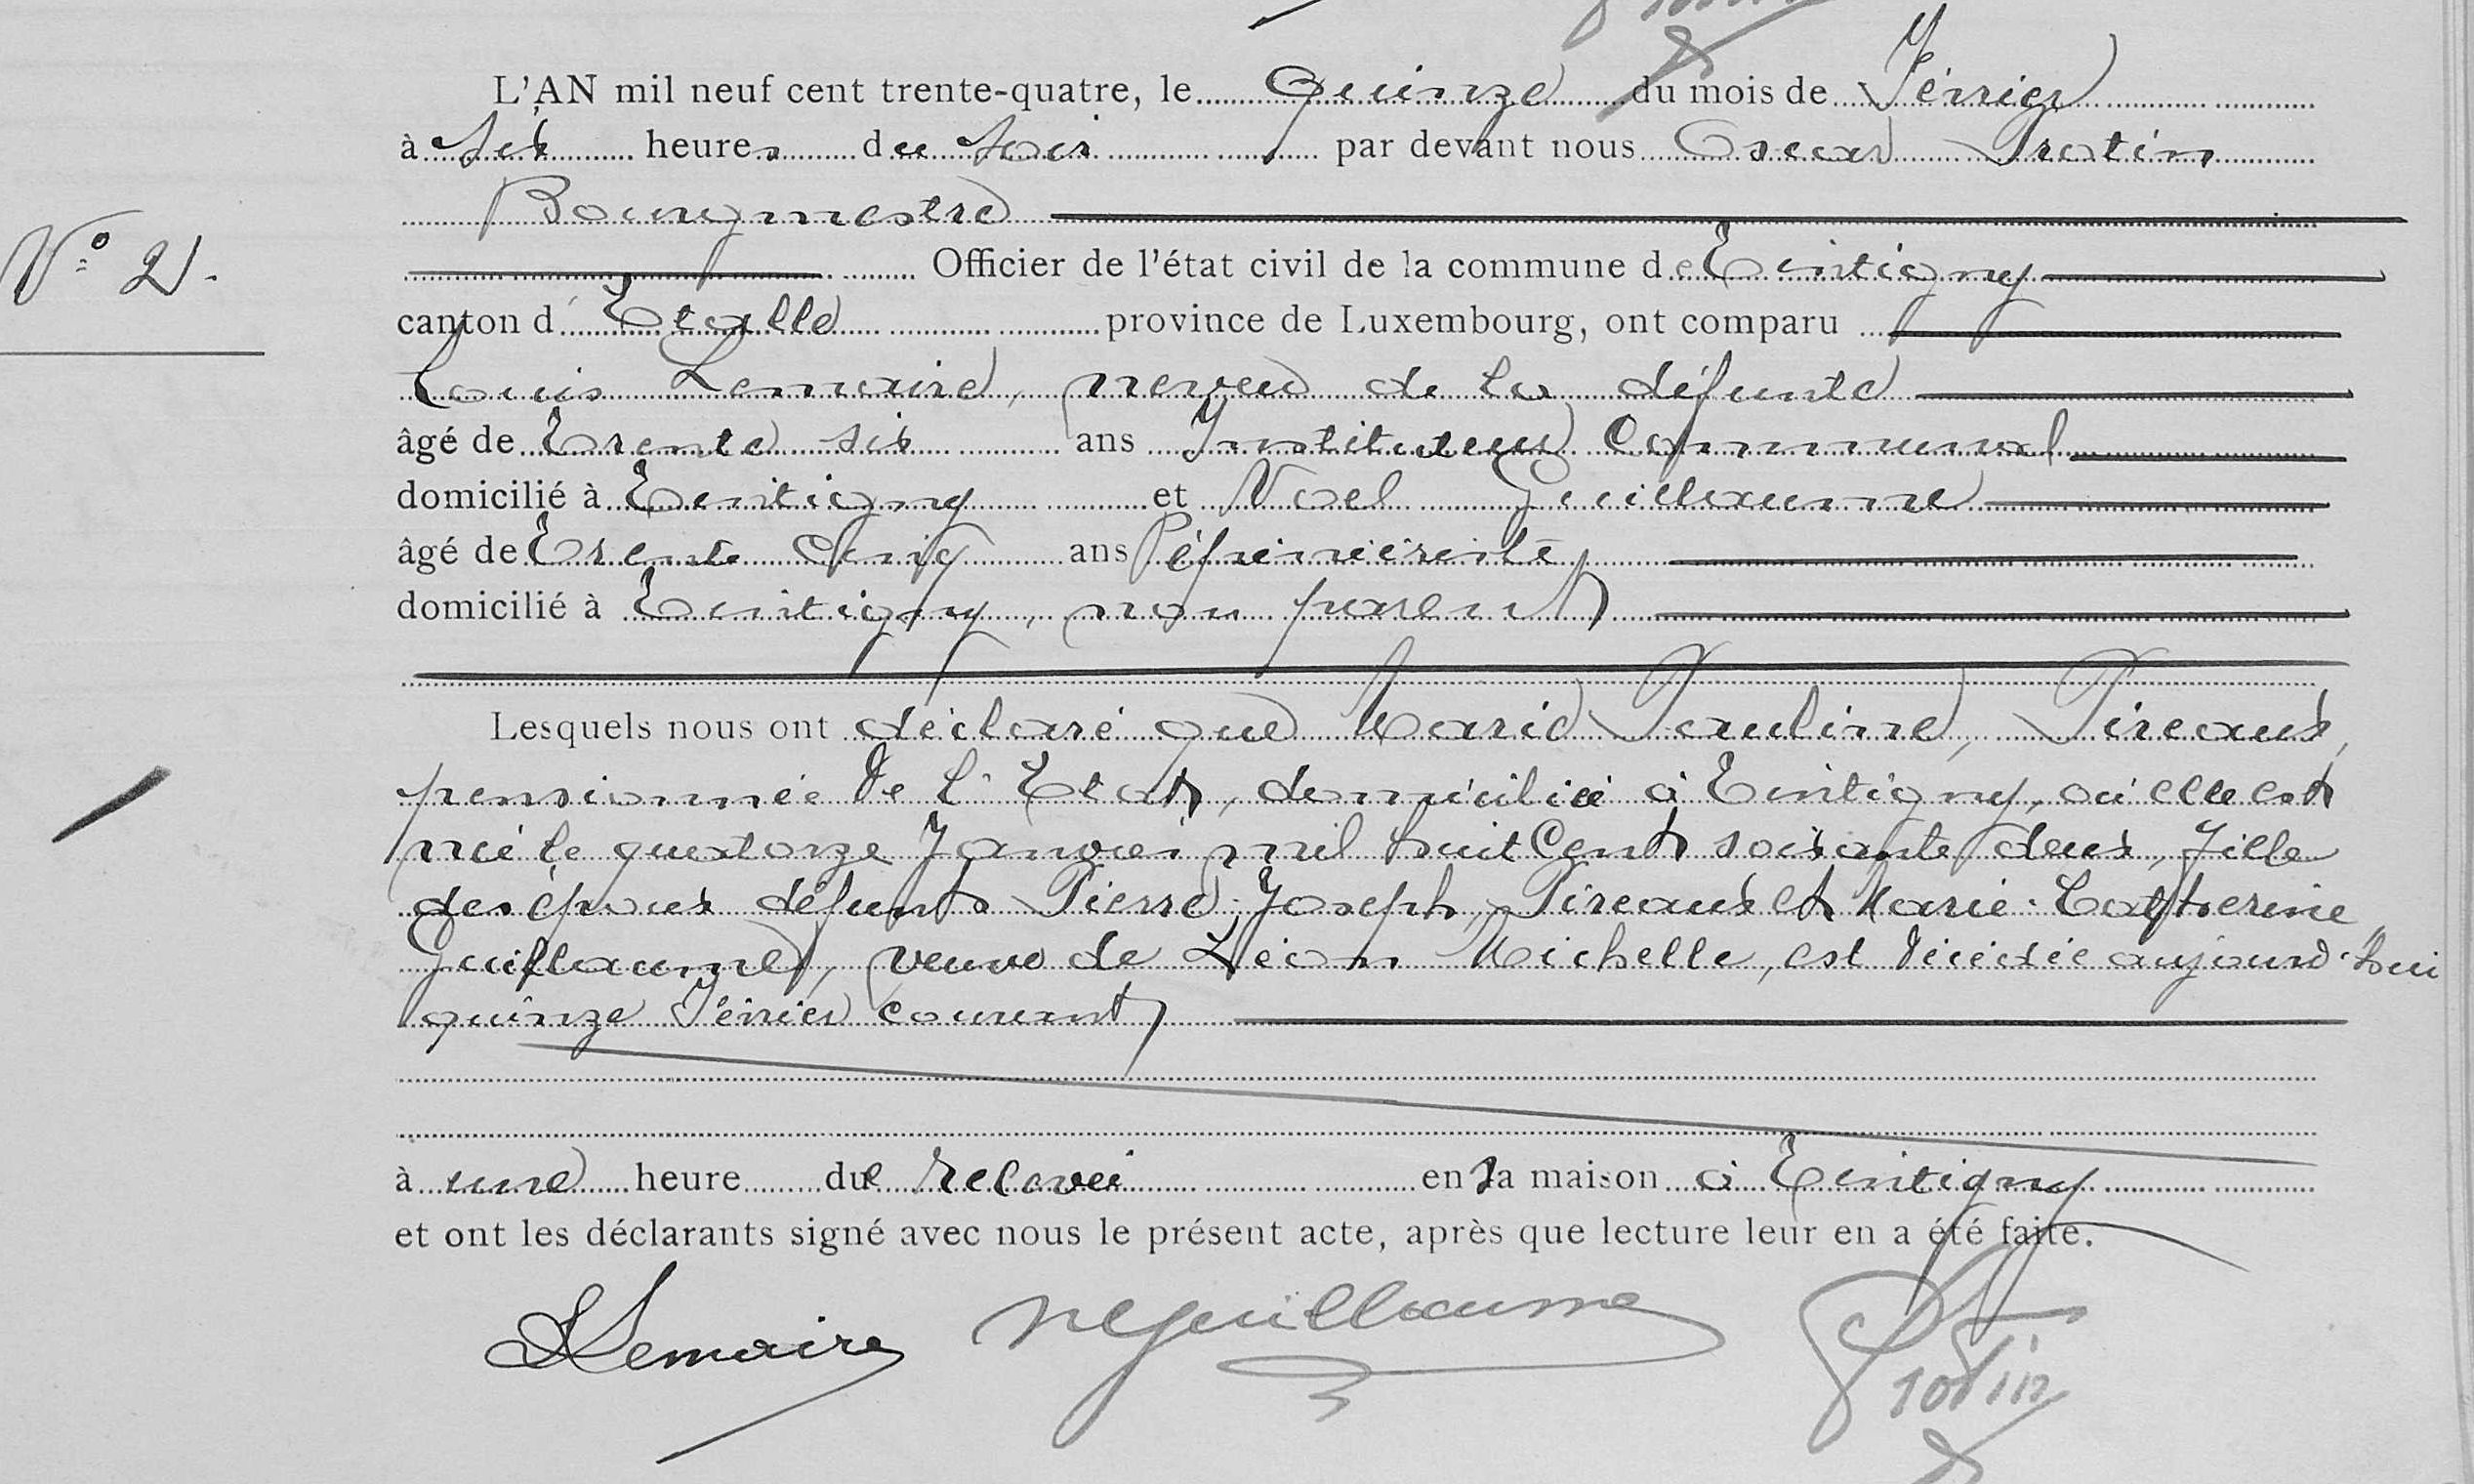 L'AN mil neuf cent trente-quatre, le Quinze du mois de Février
à six heures du soir par devant nous Oscar Protin
Bourgmestre
N° 2.
Officier de l'état civil de la commune de Tintigny
canton d'Etalle province de Luxembourg, ont comparu
Louis Lemaire, neveu de la défunte
âgé de Trente six ans Instituteur Communal
domicilié à Tintigny et Noel Guillaume
âgé de Trente Cinq ans Pépiniériste
domicilié à Tintigny, non parent
Lesquels nous ont déclaré que Marie Pauline, Pireaux,
pensionnée de l'Etat, domiciliée à Tintigny, où elle est
née le quatorze Janvier mil huit Cent soixante deux, fille
des époux défunts Pierre-Joseph, Pireaux et Marie-Catherine
Guillaume, veuve de Léon Michelle, est décédée aujourd'hui
quinze Février courant
à une heure de relevée en sa maison à Tintigny
et ont les déclarants signé avec nous le présent acte, après que lecture leur en a été faite.
LLemaire NGuillaume Protin